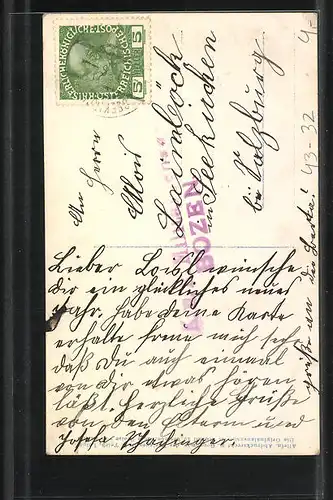 KAISERLICHE KÖNIGLICHE OSTERREICHISCHE POST
5 5
An Herrn
Alois
Laimböck
in Seekirchen
bei Salzburg
BOZEN
4-
43-32
Lieber Loisl wünsche
Dir ein glückliches neues
Jahr. habe deine Karte
erhalte freue mich sehr
daß Du auch einmal
von dir etwas hören
läßt. Herzliche Grüße
von den Eltern und
Josefa
grüße mir die